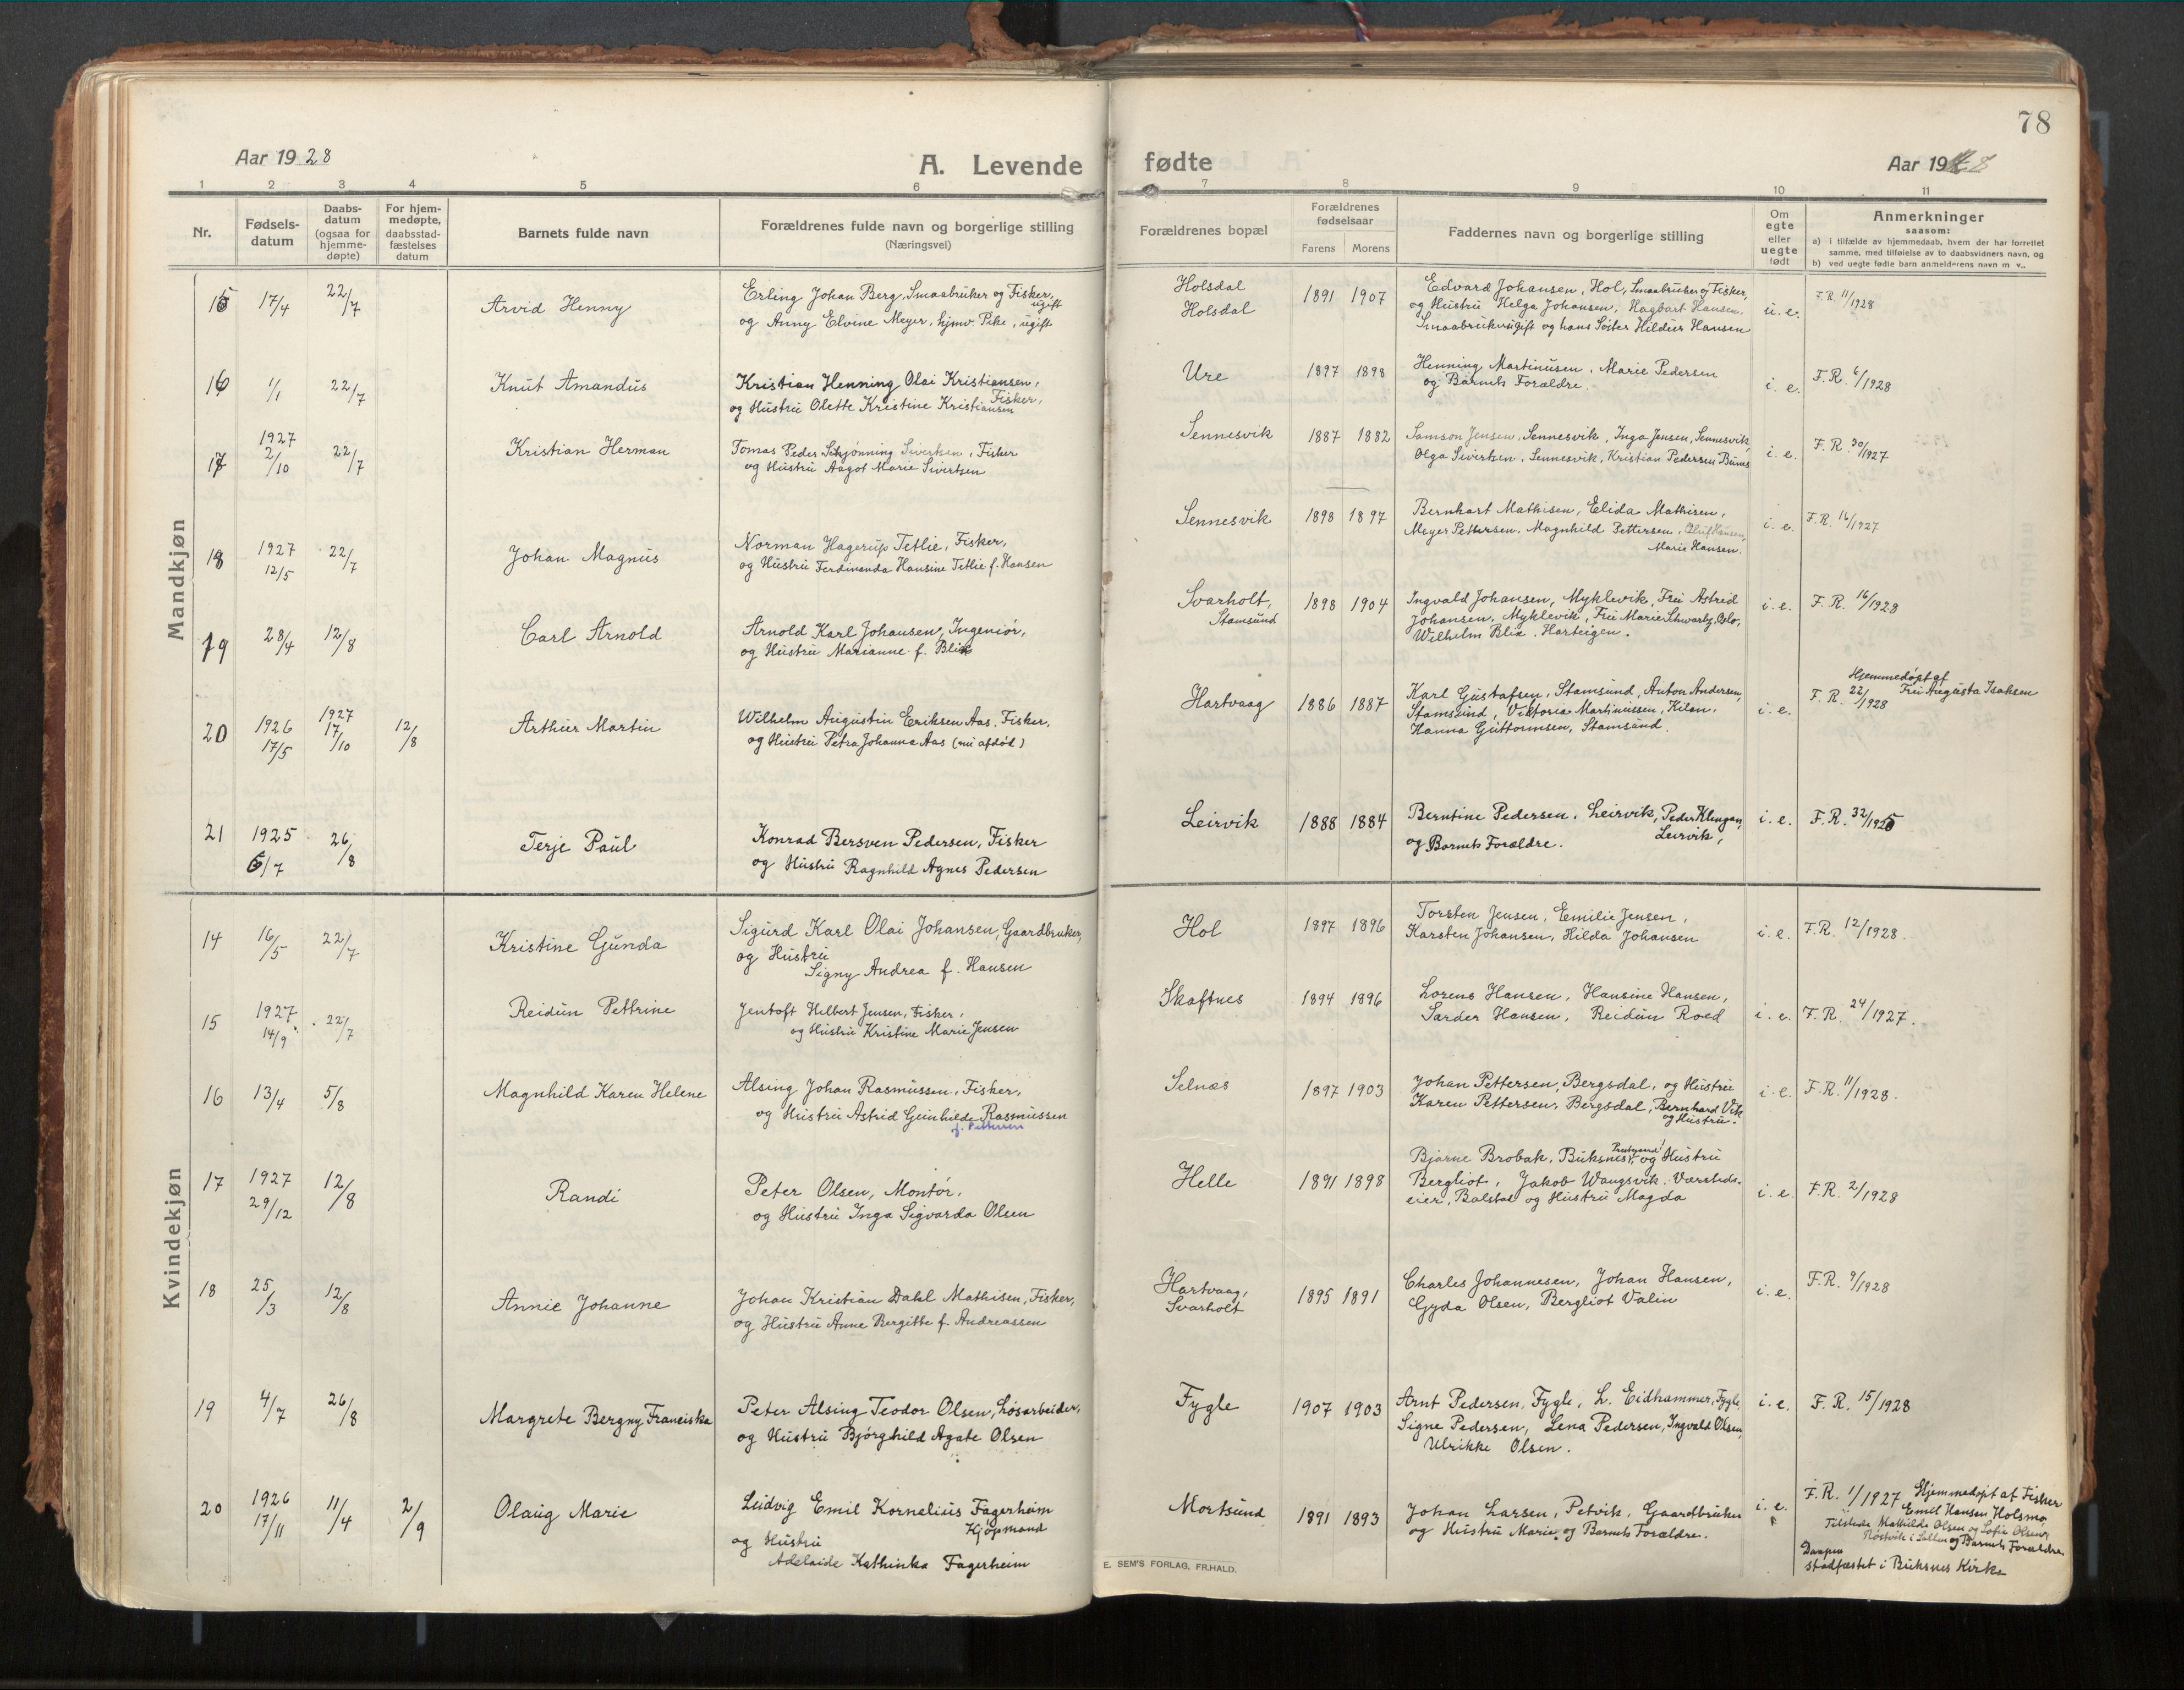 78
Aar 1928
A. Levende fødte
Aar 1928
1 2 3 4 5 6 7 8 9 10 11
Nr.
Fødsels-
datum
Daabs-
datum
(ogsaa for
hjemme-
døpte)
For hjem-
medøpte,
daabsstad-
fæstelses
datum
Barnets fulde navn
Forældrenes fulde navn og borgerlige stilling
(Næringsvei)
Forældrenes bopæl
Forældrenes
fødselsaar
Farens Morens
Faddernes navn og borgerlige stilling
Om
egte
eller
uegte
født
Anmerkninger
saasom:
a) i tilfælde av hjemmedaab, hvem der har forrettet
samme, med tilføielse av to daabsvidners navn, og
b) ved uegte fødte barn anmelderens navn m. v..
Mandkjøn
15 17/4 22/7 Arvid Henny
Erling Johan Berg, Smaabruker og Fisker, ugift
og Anny Elvine Meyer, hjmv. Pike, ugift
Holsdal
Holsdal
1891 1907
Edvard Johansen, Hol, Smaabruker og Fisker,
og Hustru Helga Johansen, Hagbart Hansen,
Smaabruker ugift og hans Søster Hildur Hansen
u. e. F.R. 11/1928
16 1/1 22/7 Knut Amandus
Kristian Henning Olai Kristiansen,
Fisker,
og Hustru Olette Kristine Kristiansen
Ure 1897 1898
Henning Martinusen, Marie Pedersen
og Barnets Forældre.
i. e. F. R. 6/1928
17 1927 2/10 22/7 Kristian Herman
Tomas Peder Schjønning Sivertsen, Fisker
og Hustru Aagot Marie Sivertsen
Sennesvik 1887 1882
Samson Jensen, Sennesvik, Inga Jensen, Sennesvik
Olga Sivertsen, Sennesvik, Kristian Pedersen
i. e. F. R. 30/1927
18 1927 12/5 22/7 Johan Magnus
Norman Hagerup Tetlie, Fisker,
og Hustru Ferdinanda Hansine Tetlie f. Hansen
Sennesvik 1898 1897
Bernhart Mathisen, Elida Mathisen,
Meyer Pettersen, Magnhild Pettersen, Oluf Hansen,
Marie Hansen.
i. e. F.R. 16/1927
19 28/4 12/8 Carl Arnold
Arnold Karl Johansen, Ingeniør,
og Hustru Marianne f. Blix
Svarholt,
Stamsund
1898 1904
Ingvald Johansen, Myklevik, Fru Astrid
Johansen, Myklevik, Fru Marie Oslo,
Wilhelm Blix, Harteigen.
i. e. F. R. 16/1928
20 1926 17/5 1927 17/10 12/8 Arthur Martin
Wilhelm Augustin Eriksen Aas, Fisker,
og Hustru Petra Johanna Aas (nu afdød)
Hartvaag 1886 1887
Karl Gustafsen, Stamsund, Anton Andersen,
Stamsund, Viktoria Martinussen, Kilan,
Hanna Guttormsen, Stamsund.
i. e. F. R. 22/1928
Hjemmedøpt af
Fru Augusta Isaksen
21 1925 6/7 26/8 Terje Paul
Konrad Bersven Pedersen, Fisker
og Hustru Ragnhild Agnes Pedersen
Leirvik 1888 1884
Berntine Pedersen, Leirvik, Peder Klengan,
Leirvik,
og Barnets Forældre.
i. e. F. R. 32/1925
Kvindekjøn
14 16/5 22/7 Kristine Gunda
Sigurd Karl Olai Johansen, Gaardbruker,
og Hustru
Signy Andrea f. Hansen
Hol 1897 1896
Torsten Jensen, Emilie Jensen,
Karsten Johansen, Hilda Johansen
i. e. F.R. 12/1928.
15 1927 14/9 22/7 Reidun Pettrine
Jentoft Hilbert Jensen, Fisker,
og Hustru Kristine Marie Jensen
Skaftnes 1894 1896
Lorens Hansen, Hansine Hansen,
Sarder Hansen, Reidun Roed
i. e. F. R. 24/1927.
16 13/4 5/8 Magnhild Karen Helene
Alsing Johan Rasmussen, Fisker,
og Hustru Astrid Gunhilde Rasmussen
f. Pettersen
Selnæs 1897 1903
Johan Pettersen, Bergsdal, og Hustru
Karen Pettersen, Bergsdal, Bernhard Vik
og Hustru.
i. e. F. R. 11/1928.
17 1927 29/12 12/8 Randi
Peter Olsen, Montør,
og Hustru Inga Sigvarda Olsen
Helle 1891 1898
Bjarne Brobak, Buksnes, og Hustru
Bergliot, Jakob Wangsvik, Værsteds-
eier, Balstad og Hustru Magda
i. e. F.R. 2/1928
18 25/3 12/8 Annie Johanne
Johan Kristian Dahl Mathisen, Fisker,
og Hustru Anne Bergitte f. Andreassen
Hartvaag,
Svarholt
1895 1891
Charles Johannesen, Johan Hansen,
Gyda Olsen, Bergliot Valin
i. e. F.R. 9/1928
19 4/7 26/8 Margrete Bergny Franciska
Peter Alsing Teodor Olsen, Løsarbeider,
og Hustru Bjørghild Agate Olsen
Fygle 1907 1903
Arnt Pedersen, Fygle, L. Eidhammer, Fygle,
Signe Pedersen, Lena Pedersen, Ingvald Olsen,
Ulrikke Olsen.
i. e. F. R. 15/1928
20 1926 17/11 11/4 2/9 Olaug Marie
Ludvig Emil Kornelius Fagerheim
Kjøpmand
og Hustru
Adelaide Kathinka Fagerheim
Mortsund 1891 1893
Johan Larsen, Petvik, Gaardbruker
og Hustru Marie, og Barnets Forældre.
i. e. F. R. 1/1927 Hjemmedøpt af Fisker
Emil Hansen Holsmo
Tilstede Mathilde Olsen og Sofie Olsen,
og Barnets Forældre
Daapen
stadfæstet i Buksnes Kirke
E. SEM'S FORLAG, FR.HALD.